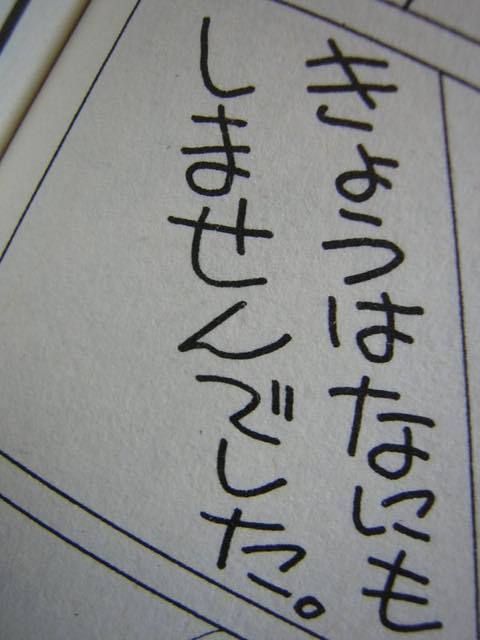 きょうはなにも
しませんでした。